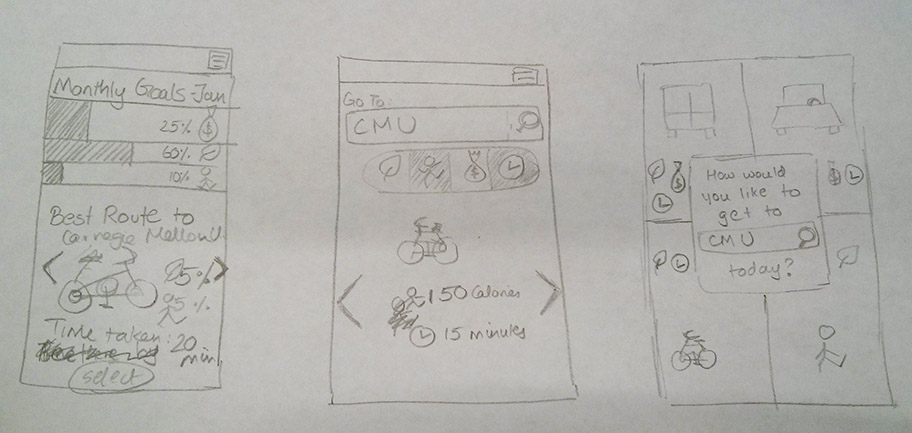 Monthly Goals-Jan
25%
60%
10%
Best Route to
Carnegie Mellon U.
25%
5%
Time taken: 20
min.
select
Go To:
CMU
150 Calories
15 minutes
How would
you like to
get to
CMU
today?